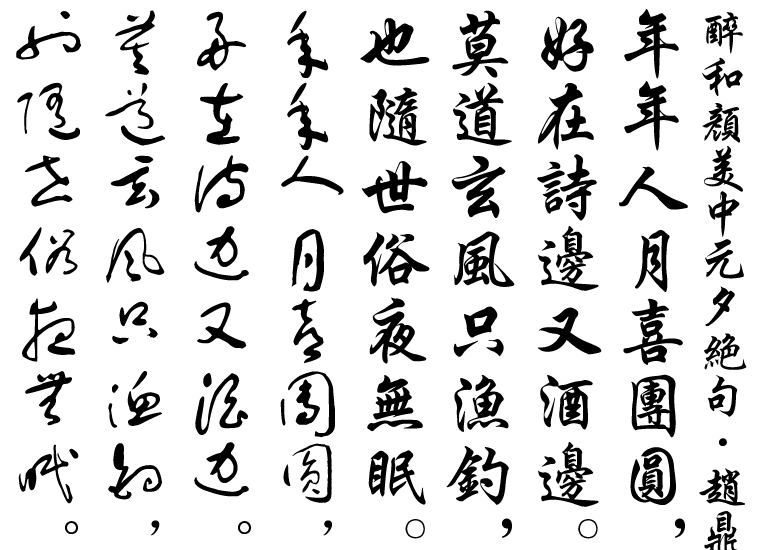 醉和顏美中元夕絕句・趙鼎
年年人月喜團圓，
好在詩邊又酒邊。
莫道玄風只漁釣，
也隨世俗夜無眠。
年年人月喜團圓，
好在詩边又酒边。
莫道玄風只漁釣，
也隨世俗夜無眠。